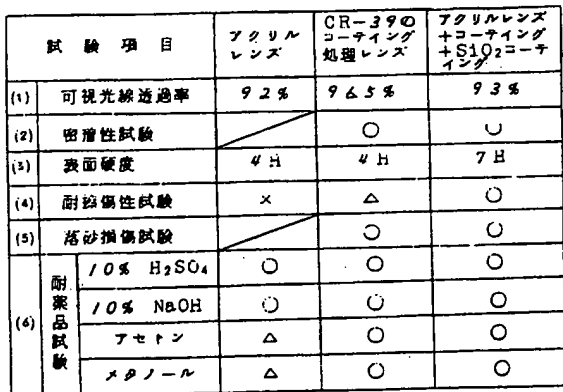 試験項目 アクリルレンズ CR-39のコーティング処理レンズ アクリルレンズ+コーティング+SiO2コーティング
(1) 可視光線透過率 92% 96.5% 93%
(2) 密着性試験 ○ ○
(3) 表面硬度 4H 4H 7H
(4) 耐擦傷性試験 × △ ○
(5) 落砂損傷試験 ○ ○
(6) 耐薬品試験
10% H2SO4 ○ ○ ○
10% NaOH ○ ○ ○
アセトン △ ○ ○
メタノール △ ○ ○